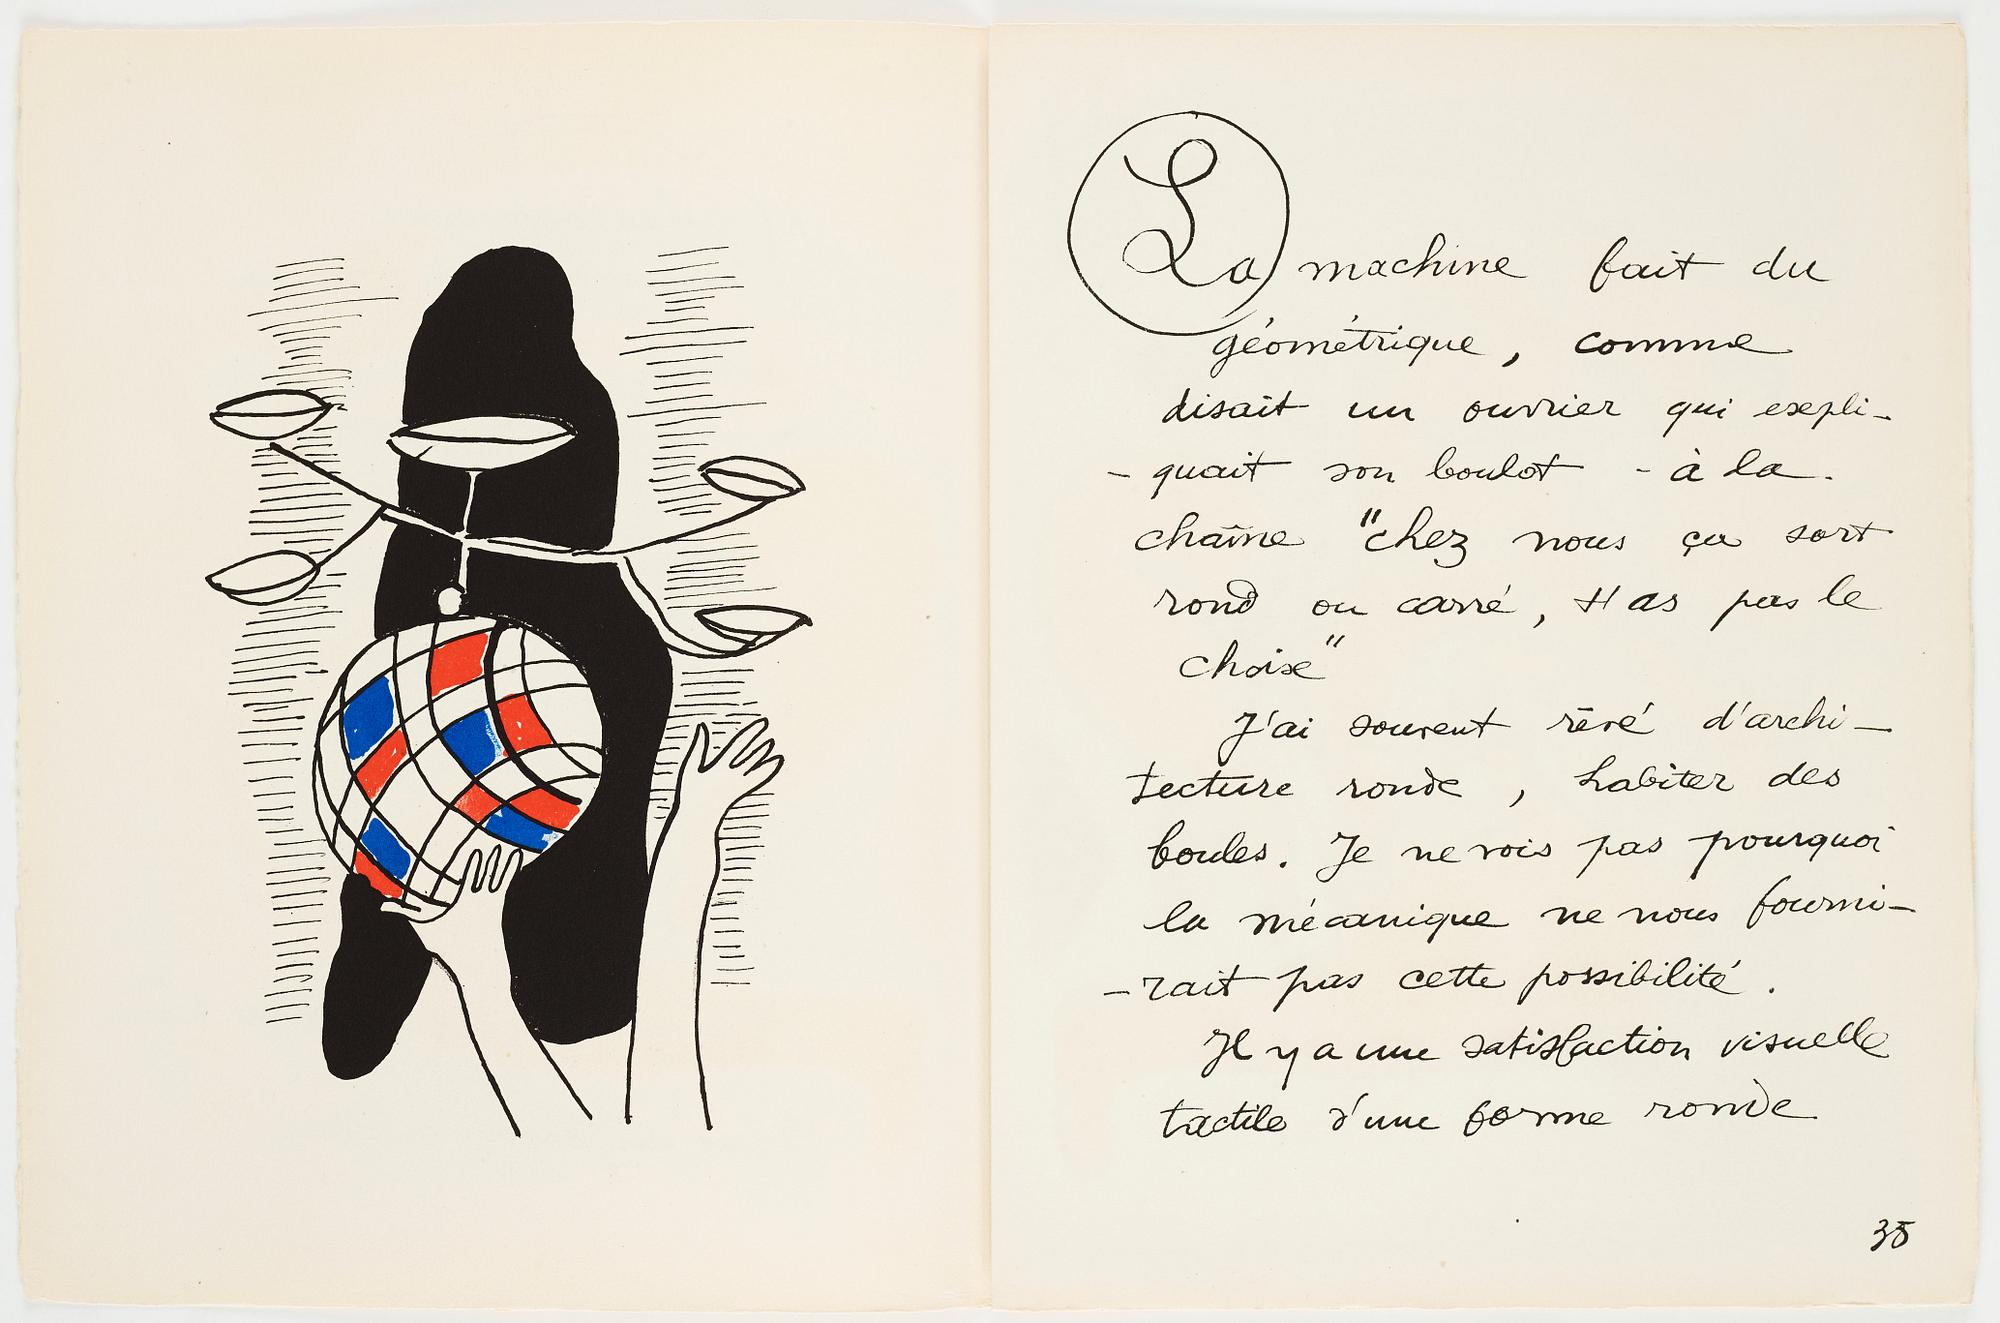 La machine fait du
géométrique, comme
disait un ouvrier qui expli-
-quait son boulot - à la.
chaîne "chez nous ça sort
rond ou carré, t'as pas le
choix"
J'ai souvent rêvé d'archi-
tecture ronde, habiter des
boules. Je ne vois pas pourquoi
la mécanique ne nous fourni-
-rait pas cette possibilité.
Il y a une satisfaction visuelle
tactile d'une forme ronde